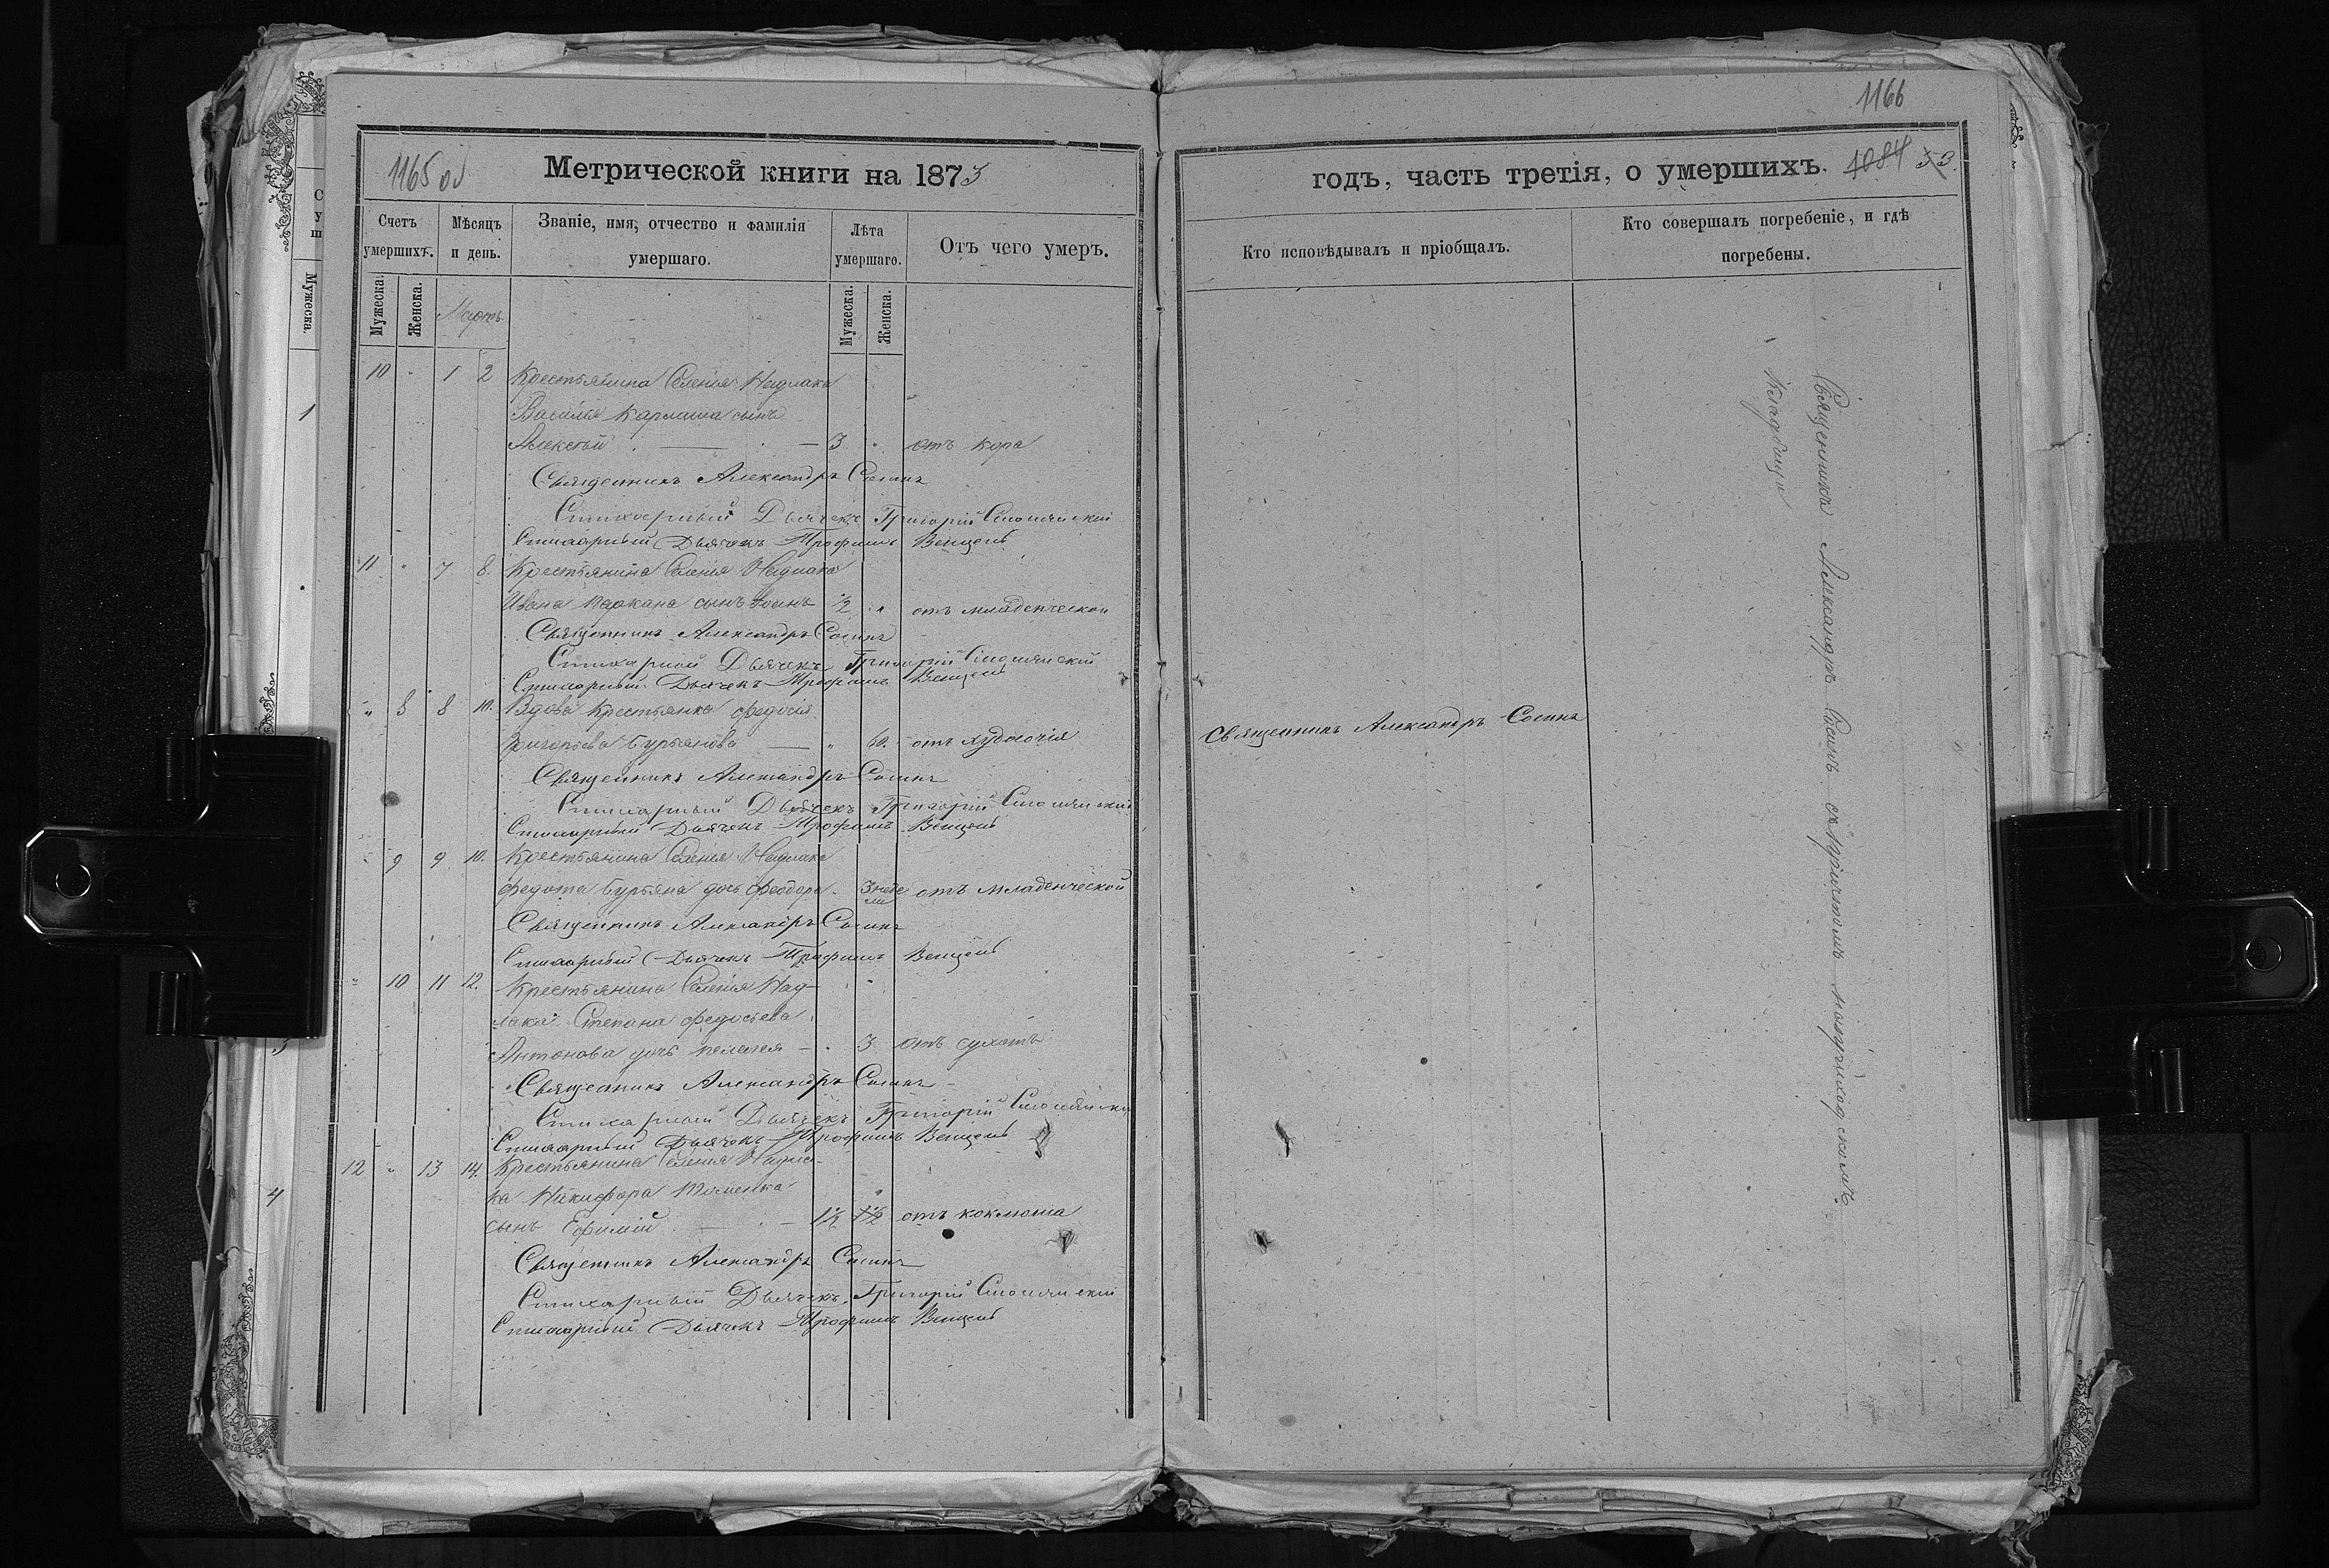 1166
1165 об
Метрической книги на 1873
годъ, часть третія, о умершихъ. 1084 53.
Счетъ умершихъ.
Мѣсяцъ и день.
Званіе, имя, отчество и фамилія умершаго.
Лѣта умершаго.
Отъ чего умеръ.
Кто исповѣдывалъ и пріобщалъ.
Кто совершалъ погребеніе, и гдѣ погребены.
Мужеска. Женска. Мартъ Мужеска. Женска.
10 " 1 2 Крестьянина Селенія Надлака
Василія Кармаша сынъ
Алексѣй 3 " отъ кора
Священникъ Александръ Сосинъ
Стихарный Дьячекъ Григорій
Стихарный Дьячекъ Трофимъ
11 " 7 8. Крестьянина Селенія Надлака
Ивана сынъ 1/2 " отъ младенческой
Священникъ Александръ Сосинъ
Стихарный Дьячекъ Григорій
Стихарный Дьячекъ Трофимъ
" 8 8 10. Вдова Крестьянка Федосія
Григорьева Бурьянова " 60. отъ худосочія
Священникъ Александръ Сосинъ
Священникъ Александръ Сосинъ
Стихарный Дьячекъ Григорій
Стихарный Дьячекъ Трофимъ
" 9 9 10. Крестьянина Селенія Надлака
Федота Бурьяна дочь Феодора 3 неде
ли отъ младенческой
Священникъ Александръ Сосинъ
Стихарный Дьячекъ Трофимъ
" 10 11 12. Крестьянина Селенія Над-
лака Степана Федосѣева
Антонова дочь Пелагея " 3 отъ сухотъ
Священникъ Александръ Сосинъ
Стихарный Дьячекъ Григорій
Стихарный Дьячекъ Трофимъ
12 " 13 14. Крестьянина Селенія Надла-
ка Никифора
сынъ Ефимій 1 1/2 1 1/2 отъ коклюша
Священникъ Александръ Сосинъ
Стихарный Дьячекъ Григорій
Стихарный Дьячекъ Трофимъ
Священникъ Александръ Сосинъ съ причтомъ на приходскомъ
Кладбищи
Мужеска.
1
3
4